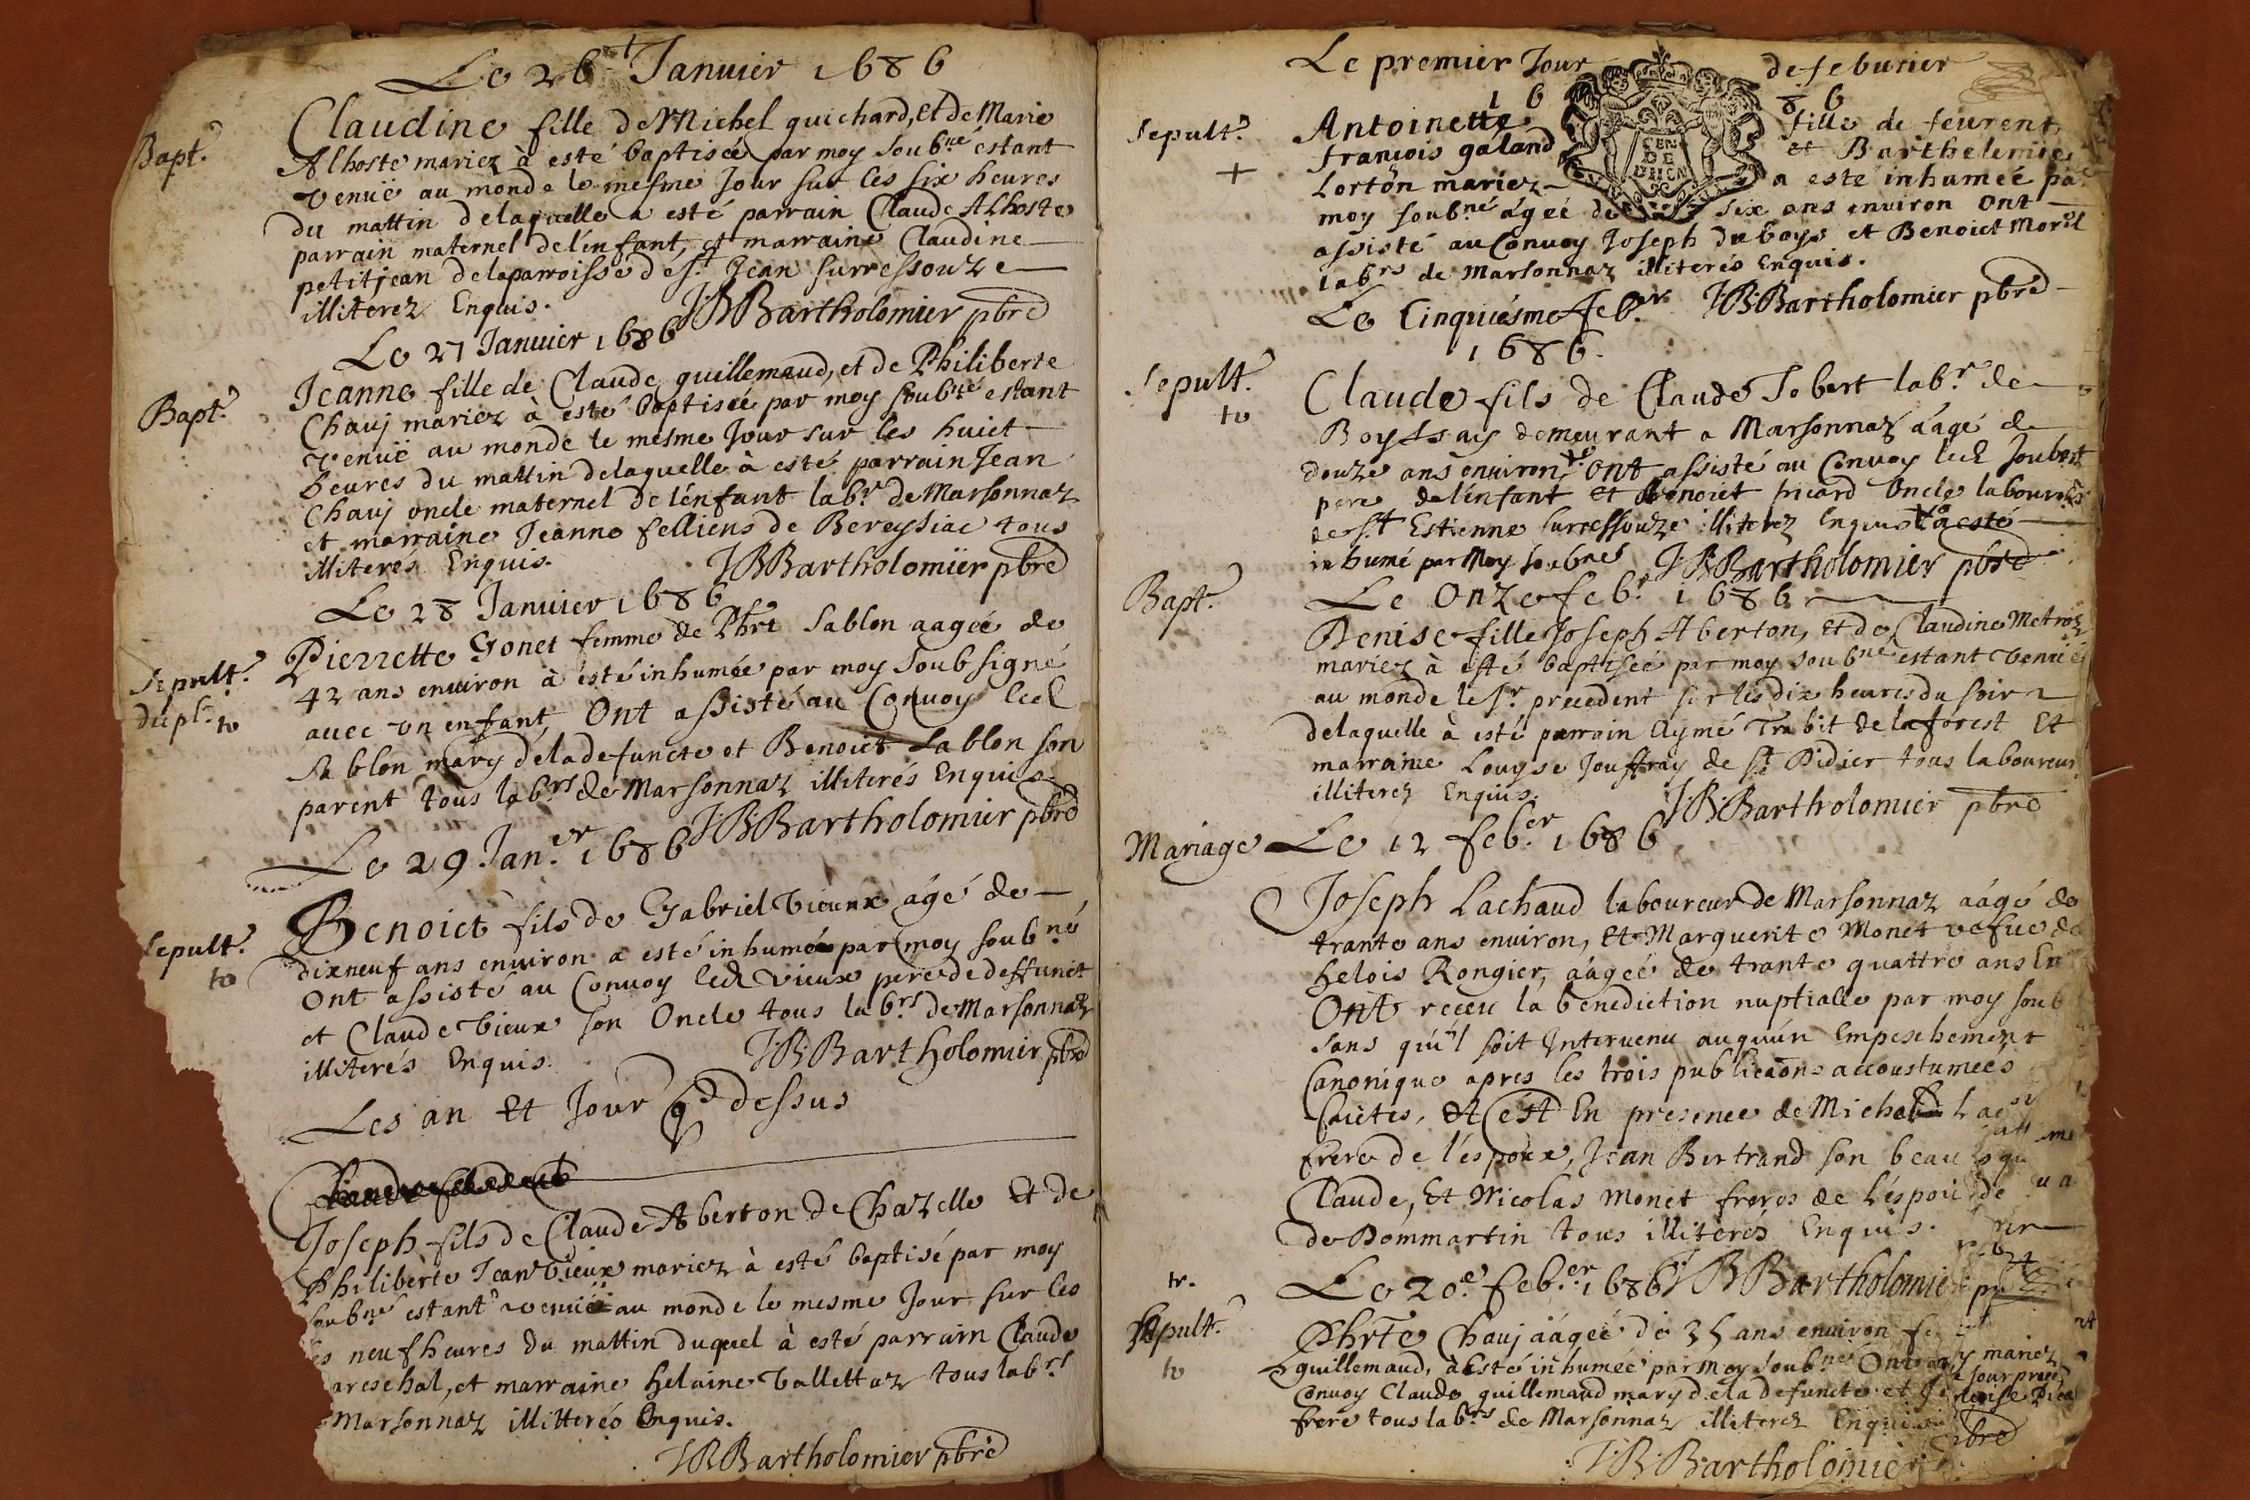 Le 26 Januier 1686
Bapt.
Claudine fille de Michel guichard, et de Marie
Alhoste mariez à esté baptiseé par moy soubné estant
venuë au monde le mesme Jour sur les six heures
du mattin delaquelle a esté parrain Claude Alhoste
parrain maternel de l'enfant, et marraine Claudine
petitjean delaparroisse de st. Jean surressouze
illiterez Enquis. JBBartholomier pbre
Le 27 Januier 1686
Bapt.
Jeanne fille de Claude guillemaud, et de Philiberte
Chauj mariez à esté baptiseé par moy soubné estant
venuë au monde le mesme Jour sur les huict
heures du mattin delaquelle à esté parrain Jean
Chauj oncle maternel de l'enfant labr de Marsonnaz
et marraine Jeanne felliens de Bereysiac tous
illiterés Enquis. JBBartholomier pbre
Le 28 Januier 1686
Sepult.
dupl. to
Pierrette Gonet femme de Phrt Sablon aageé de
42 ans enuiron à esté inhumée par moy Soubsigné
auec vn enfant, Ont assisté au Conuoy led
Sablon mary deladefuncte et Benoict Sablon son
parent tous labrs de Marsonnaz illiterés Enquis
JBBartholomier pbre
Le 29 Jan.er 1686
Sepult.
to
Benoict fils de Gabriel Vieux âgé de
dixneuf ans enuiron a esté inhumé par moy soubné
Ont assisté au Conuoy led vieux pere de deffunct
et Claude Vieux son Oncle tous labrs de Marsonnaz
illiterés Enquis. JBBartholomier pbre
Les an et Jour qd dessus
Joseph fils de Claude Aberton de Chazelle Et de
Philibèrte Jean Vieux mariez à esté baptisé par moy
soubné estant venuë au monde le mesme Jour sur les
neuf heures du mattin duquel à esté parrain Claude
areschal, et marraine helaine Vallettaz tous labrs
Marsonnaz illitterés Enquis.
JBBartholomier pbre
Le premier Jour de feburier
1686
Sepult.
+
Antoinette fille de feurent
françois galand et Barthelemie
Lorton mariez a este inhumeé par
moy soubné âgeé de six ans enuiron Ont
assisté au Conuoy Joseph duboys et Benoict Morel
labrs de Marsonnaz illiterés Enquis.
JBBartholomier pbre
Le Cinquiésme feb.er
1686.
Sepult.
to
Claude fils de Claude Jobert labr. de
Boyssay demeurant a Marsonnaz aâgé de
douze ans enuiron Ont assisté au Conuoy led Joubert
pere de l'enfant et Benoict picard Oncle laboureurs
de st Estienne surressouze illiterez Enquis a esté
inhumé par Moy soubnes JBBartholomier pbre
Le Onze feb. 1686
Bapt.
Denise fille Joseph Aberton, et de Claudine Metroz
mariez à esté baptiseé par moy soubné estant venue
au monde le Jr precedent sur les dix heures du soir
delaquelle à esté parrain Aymé Trabit de laforest Et
marraine Louyse Jouffray de st Didier tous laboureurs
illiterez Enquis. JBBartholomier pbre
Mariage
Le 12 feb.er 1686
Joseph Lachaud laboureur de Marsonnaz aâgé de
trante ans enuiron, Et Marguerite Monet vefue de
helois Rongier, aâgeé de trante quattre ans En
Ont reçeu la benediction nuptialle par moy soub
sans qu'il soit Interuenu auquun Empeschement
Canonique apres les trois publicãons accoustumeés
faictes, Et c'est En presence de Michel
frere de l'espoux, Jean Bertrand son beau
Claude, Et Nicolas Monet freres de l'espou
de Dommartin tous illiterés Enquis.
JBBartholomie
Le 20.e feb.er 1686
tr.
Sepult.
to
Phrte Chauj aâgeé de 35 ans enuiron
guillemaud, à esté inhumeé par moy soubné Ont
Conuoy Claude guillemaud mary de la defuncte et
frere tous labrs de Marsonnaz illiterez Enquis
JBBartholomier
mariez
pbre